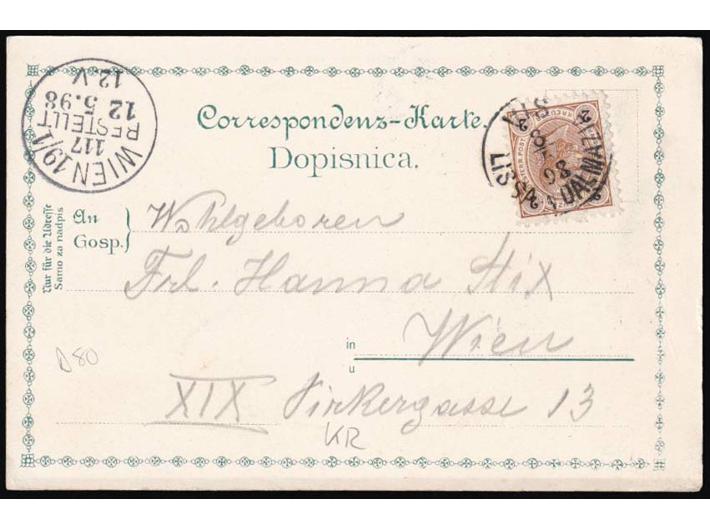 WIEN 19/1
117
BESTELLT
12.5.98
12.V
Correspondenz-Karte.
Dopisnica.
LISSA
DALMAZIA
2
2
2
2
Nur für die Adresse
Samo za nadpis
An
Gosp.
Wohlgeboren
Frl. Hanna Stix
in
u
Wien
XIX Pirkergasse 13
D80
KR